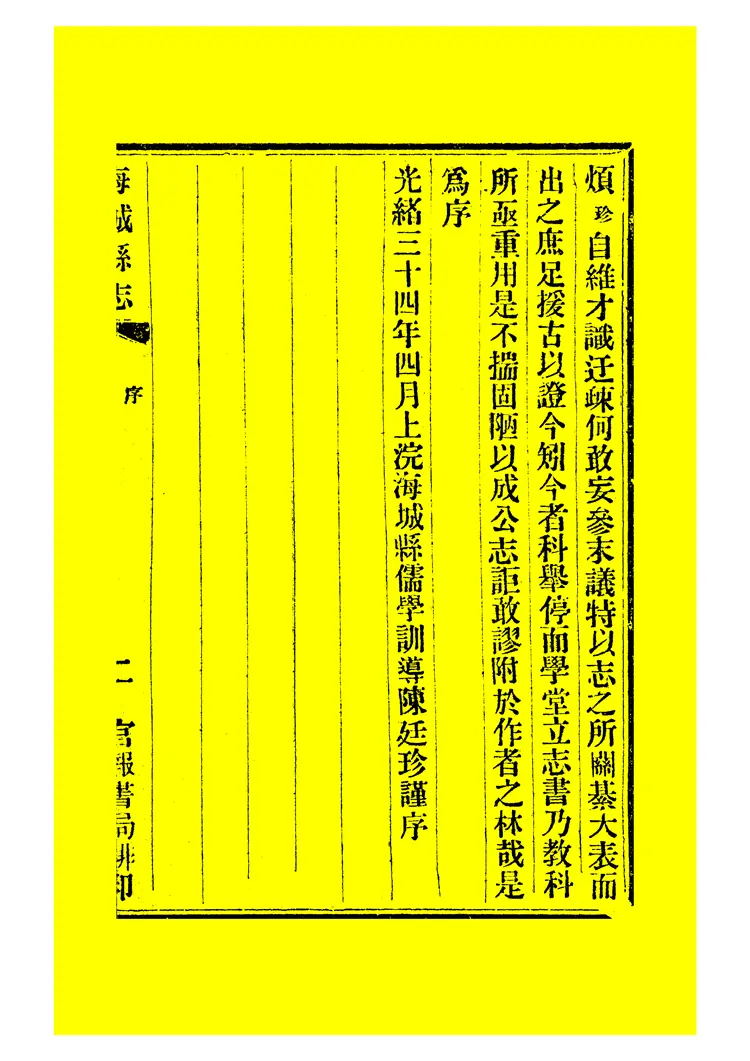 煩珍自維才識迂疎何敢妄參末議特以志之所關綦大表而
出之庶足援古以證今矧今者科舉停而學堂立志書乃教科
所亟重用是不揣固陋以成公志詎敢謬附於作者之林哉是
爲序
光緒三十四年四月上浣海城縣儒學訓導陳廷珍謹序
海城縣志
序
二
官報書局排印